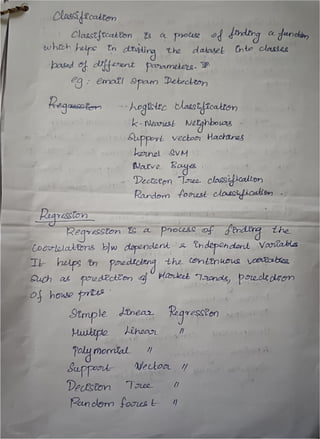 Classification
Classification is a process of finding a function
which helps in dividing the dataset into classes
based of different parameters.
eg : email spam Detection
Regression - Logistic classification
K-Nearest Neighbours -
Support vector Machines
Kernel SVM
Naive Bayes
- Decision Tree classification
Random forest classification -
Regression
Regression is a process of finding the
Coorelations b/w dependent & independent variables
It helps in predicting the continuous variables
Such as prediction of Market Trends, prediction
of house prices
Simple Linear Regression
Multiple Linear "
Polynomial "
Support Vector "
Decision Tree "
Random forest "